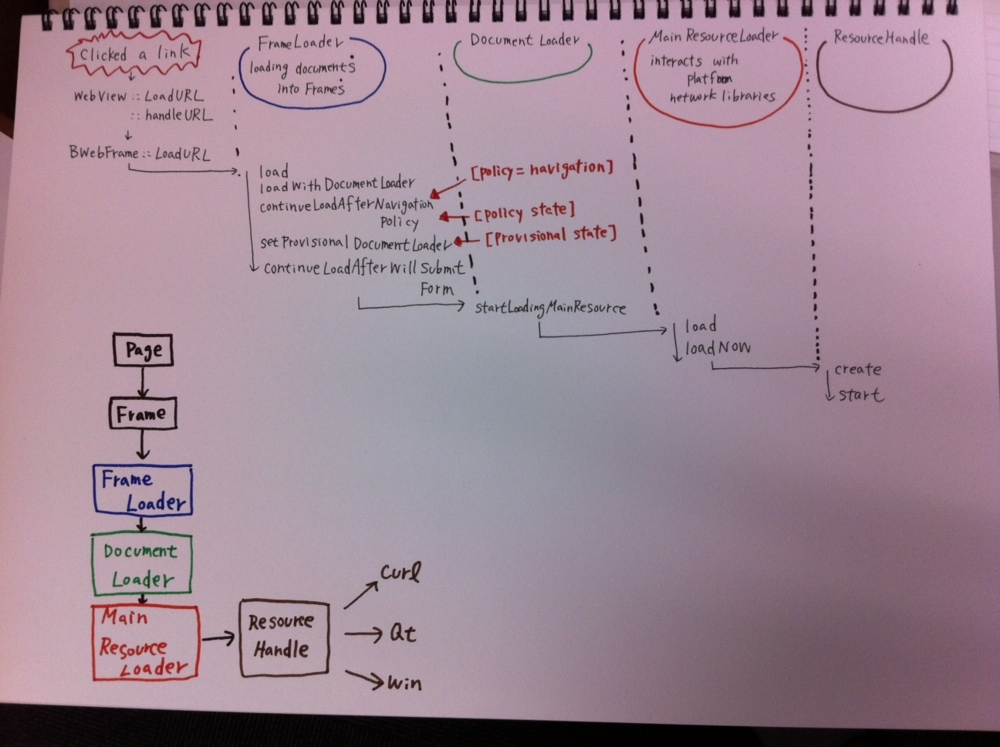 Clicked a link
WebView :: LoadURL
:: handleURL
BWebFrame :: LoadURL
FrameLoader
loading documents
into Frames
Document Loader
Main ResourceLoader
interacts with
platform
network libraries
ResourceHandle
load
load With DocumentLoader
continueLoadAfterNavigation
Policy
set Provisional DocumentLoader
continueLoadAfter Will Submit
Form
[policy = navigation]
[policy state]
[Provisional state]
startLoadingMainResource
load
loadNOW
create
start
Page
Frame
Frame
Loader
Document
Loader
Main
Resource
Loader
Resource
Handle
Curl
Qt
Win